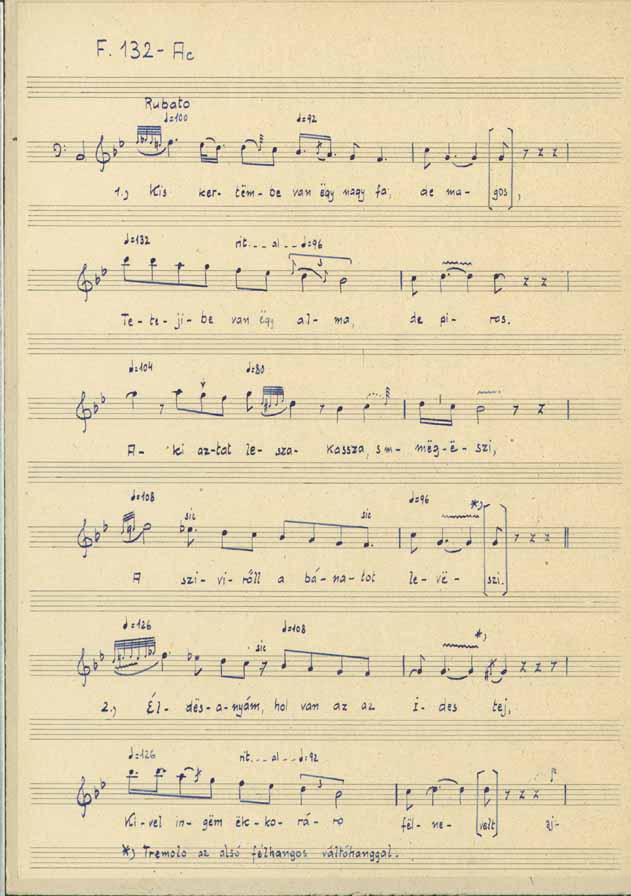 F. 132 - Ac
Rubato
♩=100 ♩=92
1.) Kis ker- tëm- be van ëgy nagy fa, de ma- gos,
♩=132 rit. _ _ _ al _ _ ♩=96
3
Te- te- ji- be van ëgy al- ma, de pi- ros.
♩=104 ♩=80
A- ki az-tat le- sza- kassza, s m- mëg-ë- szi,
♩=108 sic sic ♩=96 *)
A szi- vi- rőll a bá- na- tot le- vë- szi.
♩=126 sic ♩=108 *)
2.) Él- dës- a- nyám, hol van az az í- des tej,
♩=126 rit _ _ al _ _ ♩=92
3
Ki- vel in- gëm ëk- ko- rá- ro fël- ne- velt aj-
*) Tremolo az alsó félhangos váltóhanggal.